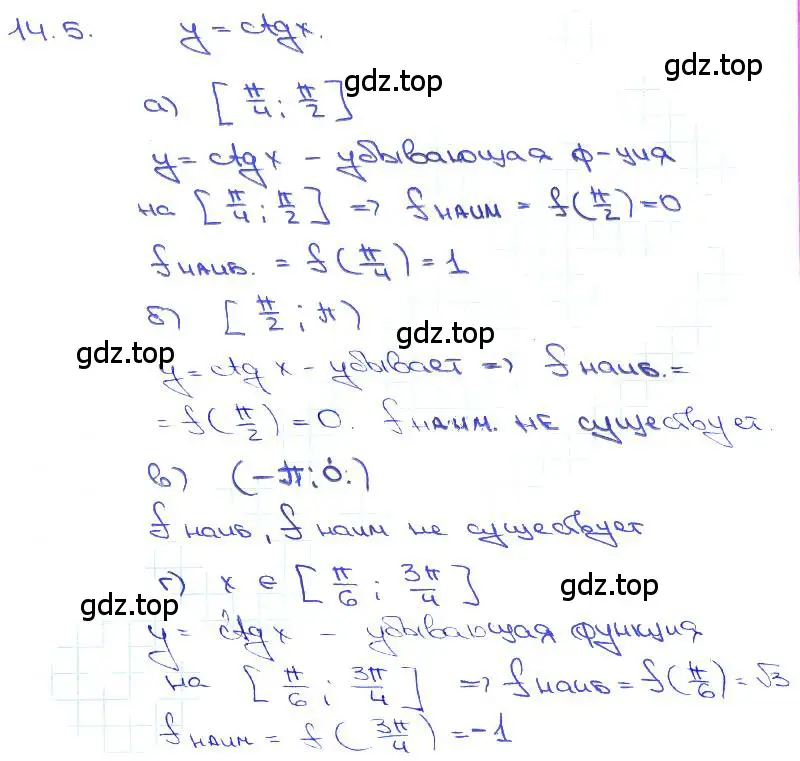 14.5. y = ctgx.
gdz.top
gdz.top
а) [π/4; π/2]
y = ctgx – убывающая ф-ция
на [π/4; π/2] => fнаим = f(π/2) = 0
fнаиб. = f(π/4) = 1
б) [π/2; π)
gdz.top
gdz.top
y = ctg x – убывает => fнаиб. =
= f(π/2) = 0. fнаим. не существует.
в) (-π; 0)
fнаиб, fнаим не существует
г) x ∈ [π/6; 3π/4]
gdz.top
gdz.top
y = ctgx – убывающая функция
на [π/6; 3π/4] => fнаиб = f(π/6) = √3
fнаим = f(3π/4) = -1